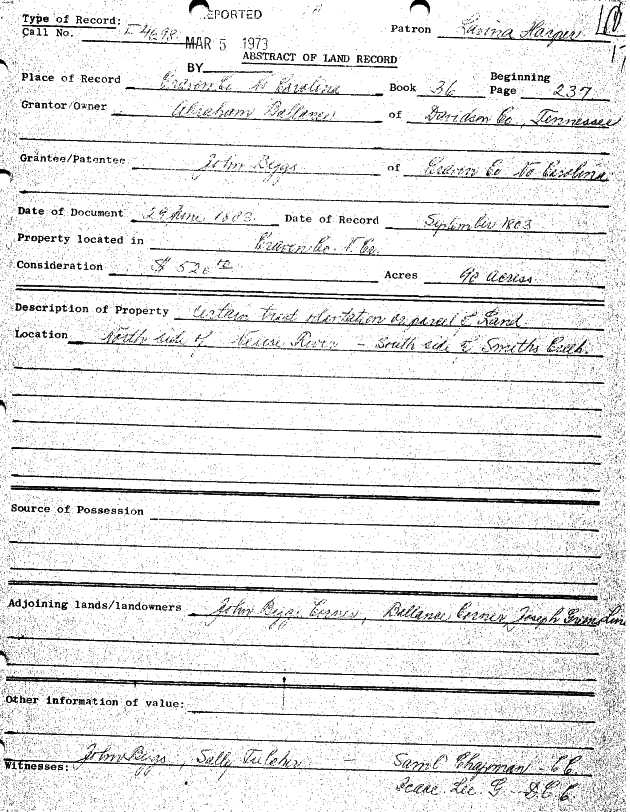 REPORTED
Type of Record:
Call No. I 4698 Patron Lavina Harper
MAR 5 1973
ABSTRACT OF LAND RECORD
BY
Place of Record Craven Co No Carolina Book 36 Beginning Page 237
Grantor/Owner Abraham Ballance of Davidson Co, Tennessee
Grantee/Patentee John Biggs of Craven Co No Carolina
Date of Document 29 June 1803 Date of Record September 1803
Property located in Craven Co. N. Ca.
Consideration $ 520 Acres 90 acres.
Description of Property certain tract plantation or parcel of Land
Location North side of Neuse River - South side of Smiths Creek.
Source of Possession
Adjoining lands/landowners John Biggs Corner, Ballance Corner, Joseph Line
Other information of value:
Witnesses: John Biggs, Sally Fulcher - Saml Chapman - CC.
Lee G D.C.C.